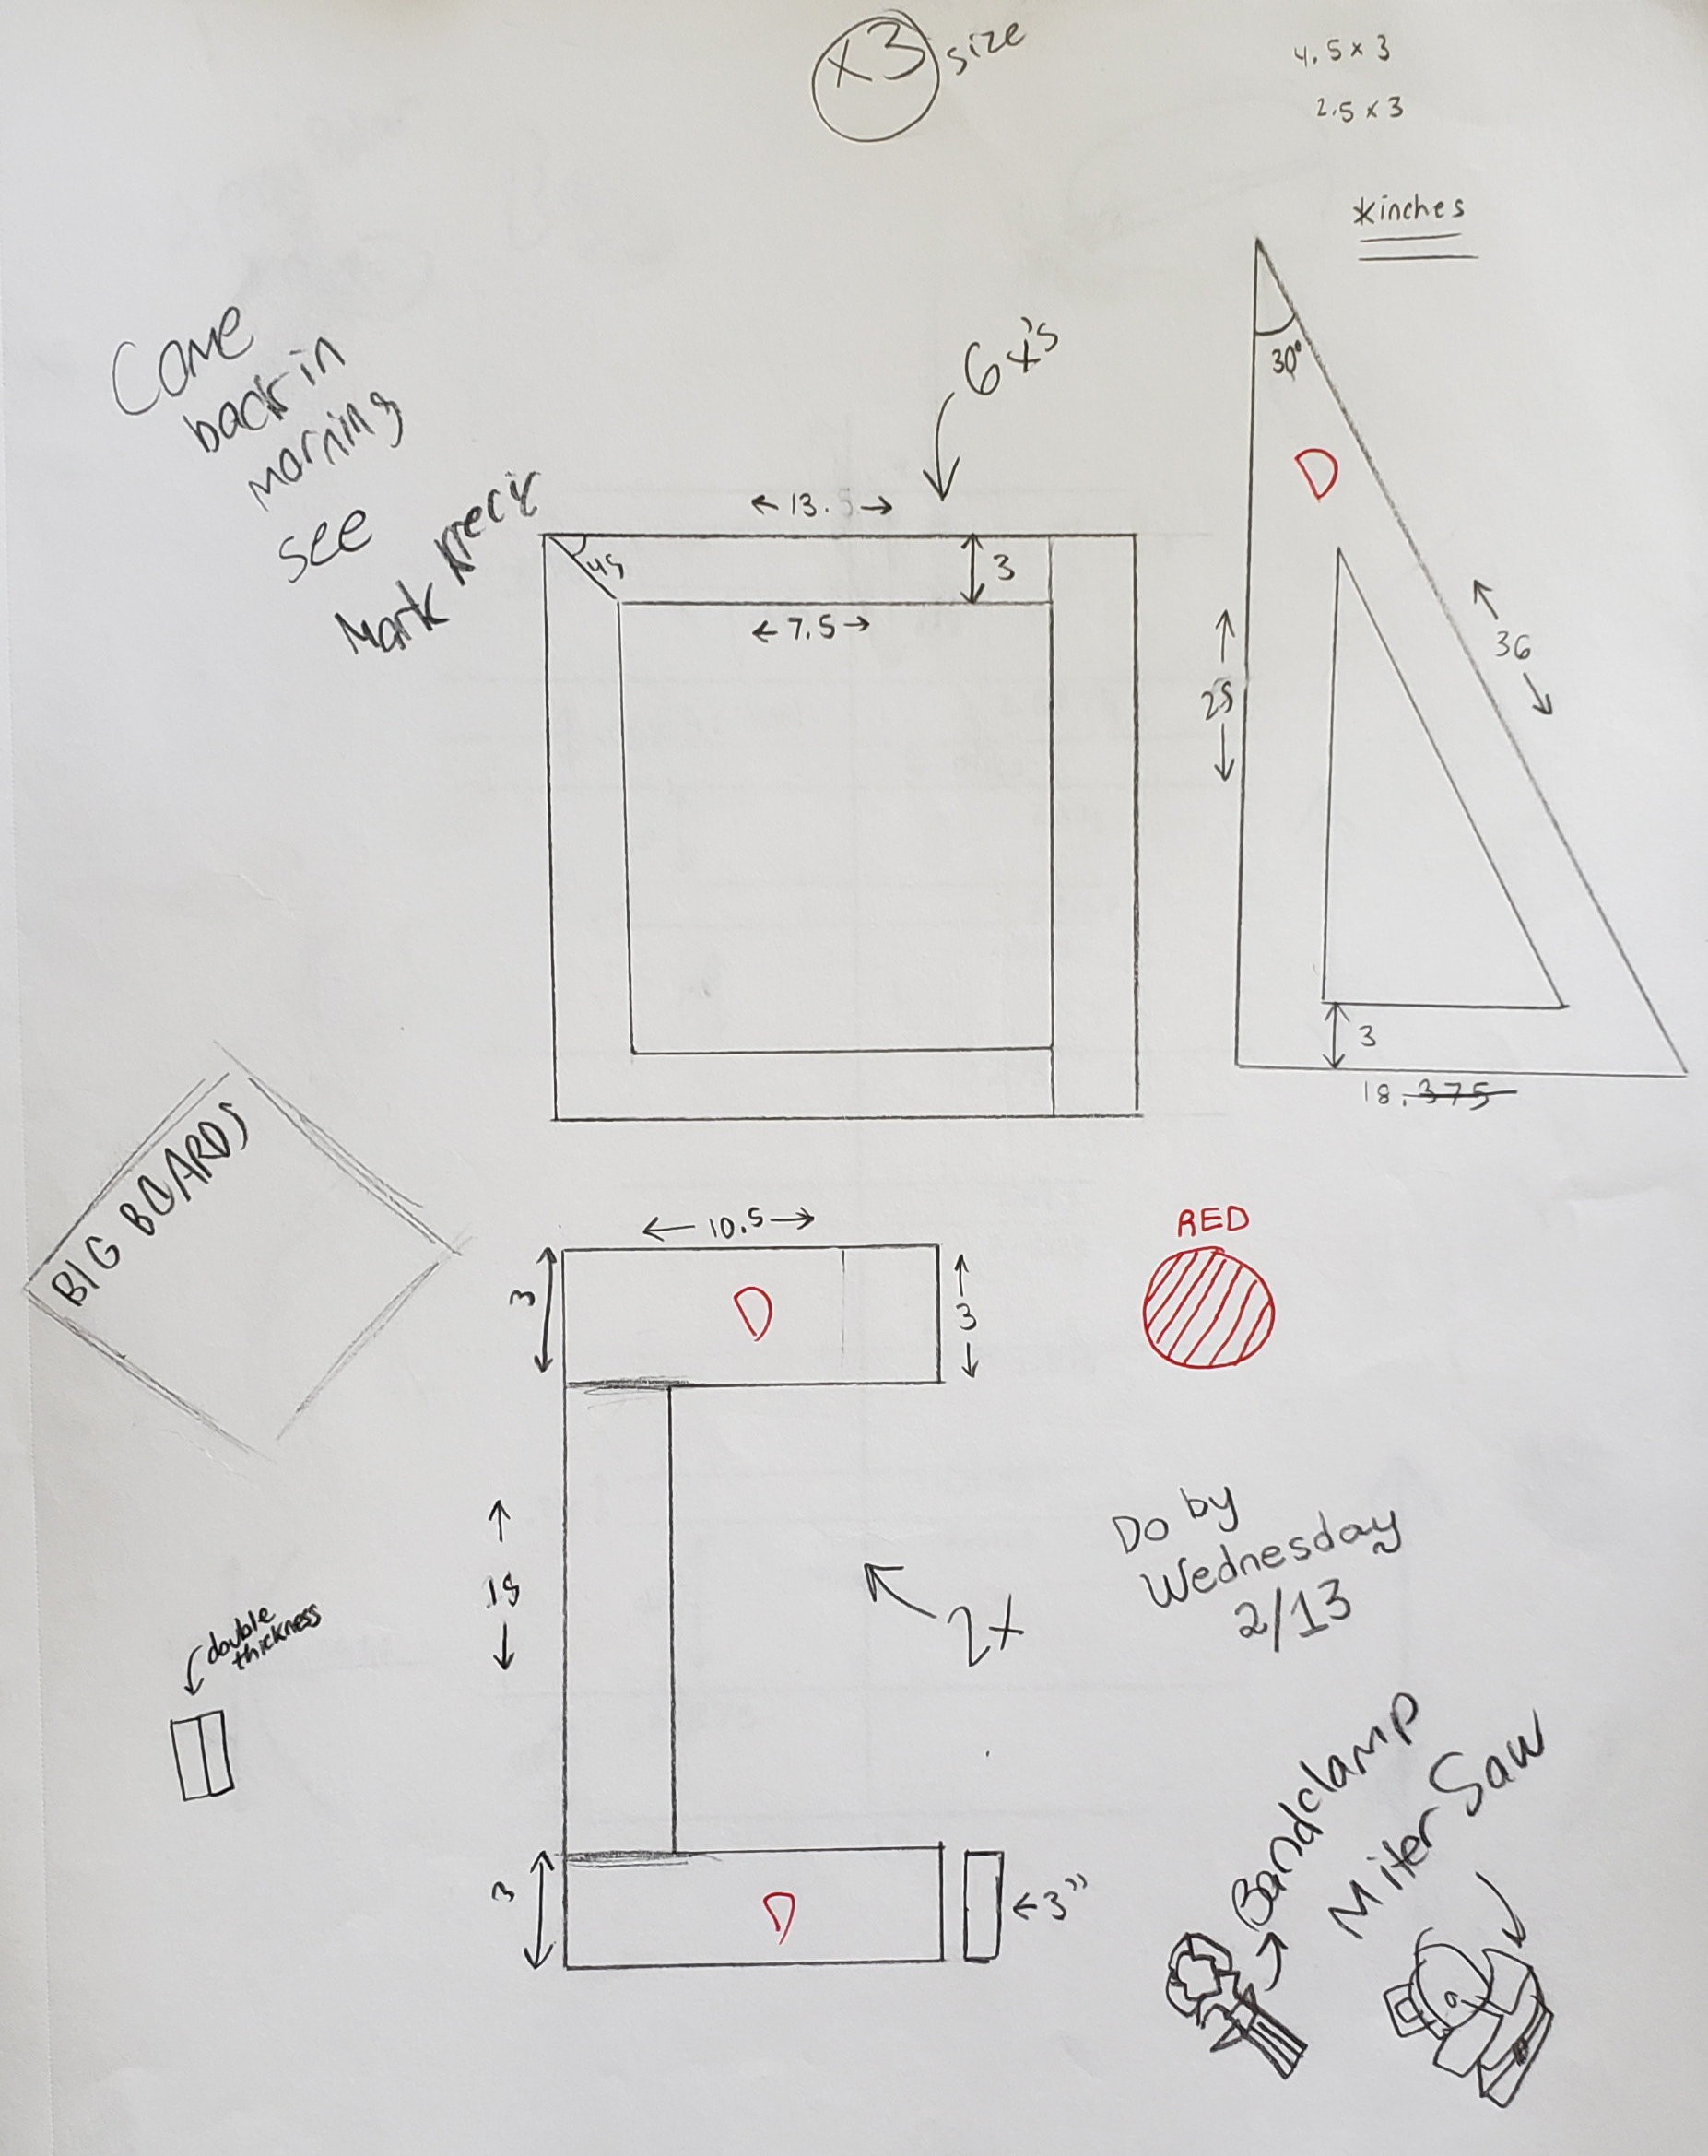 x3 size
4.5 x 3
2.5 x 3
*inches
Come
back in
morning
see
Mark
6x's
30°
D
← 13.5 →
45
3
← 7.5 →
25
36
3
18.375
BIG BOARDS
← 10.5 →
RED
3
D
3
Do by
Wednesday
2/13
2x
double
thickness
Bandclamp
Miter Saw
3
D
←3"